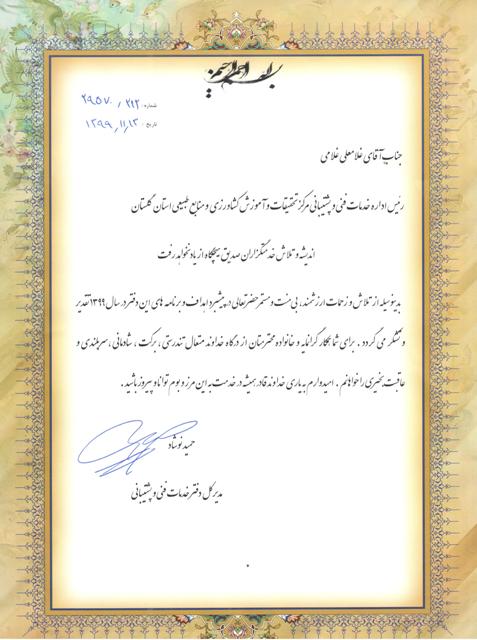 بسم الله الرحمن الرحیم
شماره: ۲۱۳ / ۲۹۵۷۰
تاریخ: ۱۳۹۹/۱۱/۱۳
جناب آقای غلامعلی غلامی
رئیس اداره خدمات فنی و پشتیبانی مرکز تحقیقات و آموزش کشاورزی و منابع طبیعی استان گلستان
اندیشه و تلاش خدمتگزاران صدیق هیچگاه از یاد نخواهد رفت
بدینوسیله از تلاش و زحمات ارزشمند، بی منت و مستمر حضرتعالی در پیشبرد اهداف و برنامه های این دفتر در سال ۱۳۹۹ تقدیر
و تشکر می گردد . برای شما همکار گرانمایه و خانواده محترمتان از درگاه خداوند متعال تندرستی ، برکت ، شادمانی ، سربلندی و
عاقبت بخیری را خواهانم . امیدوارم به یاری خداوند قادر همیشه در خدمت به این مرز و بوم توانا و پیروز باشید .
حمید نوشاد
مدیر کل دفتر خدمات فنی و پشتیبانی